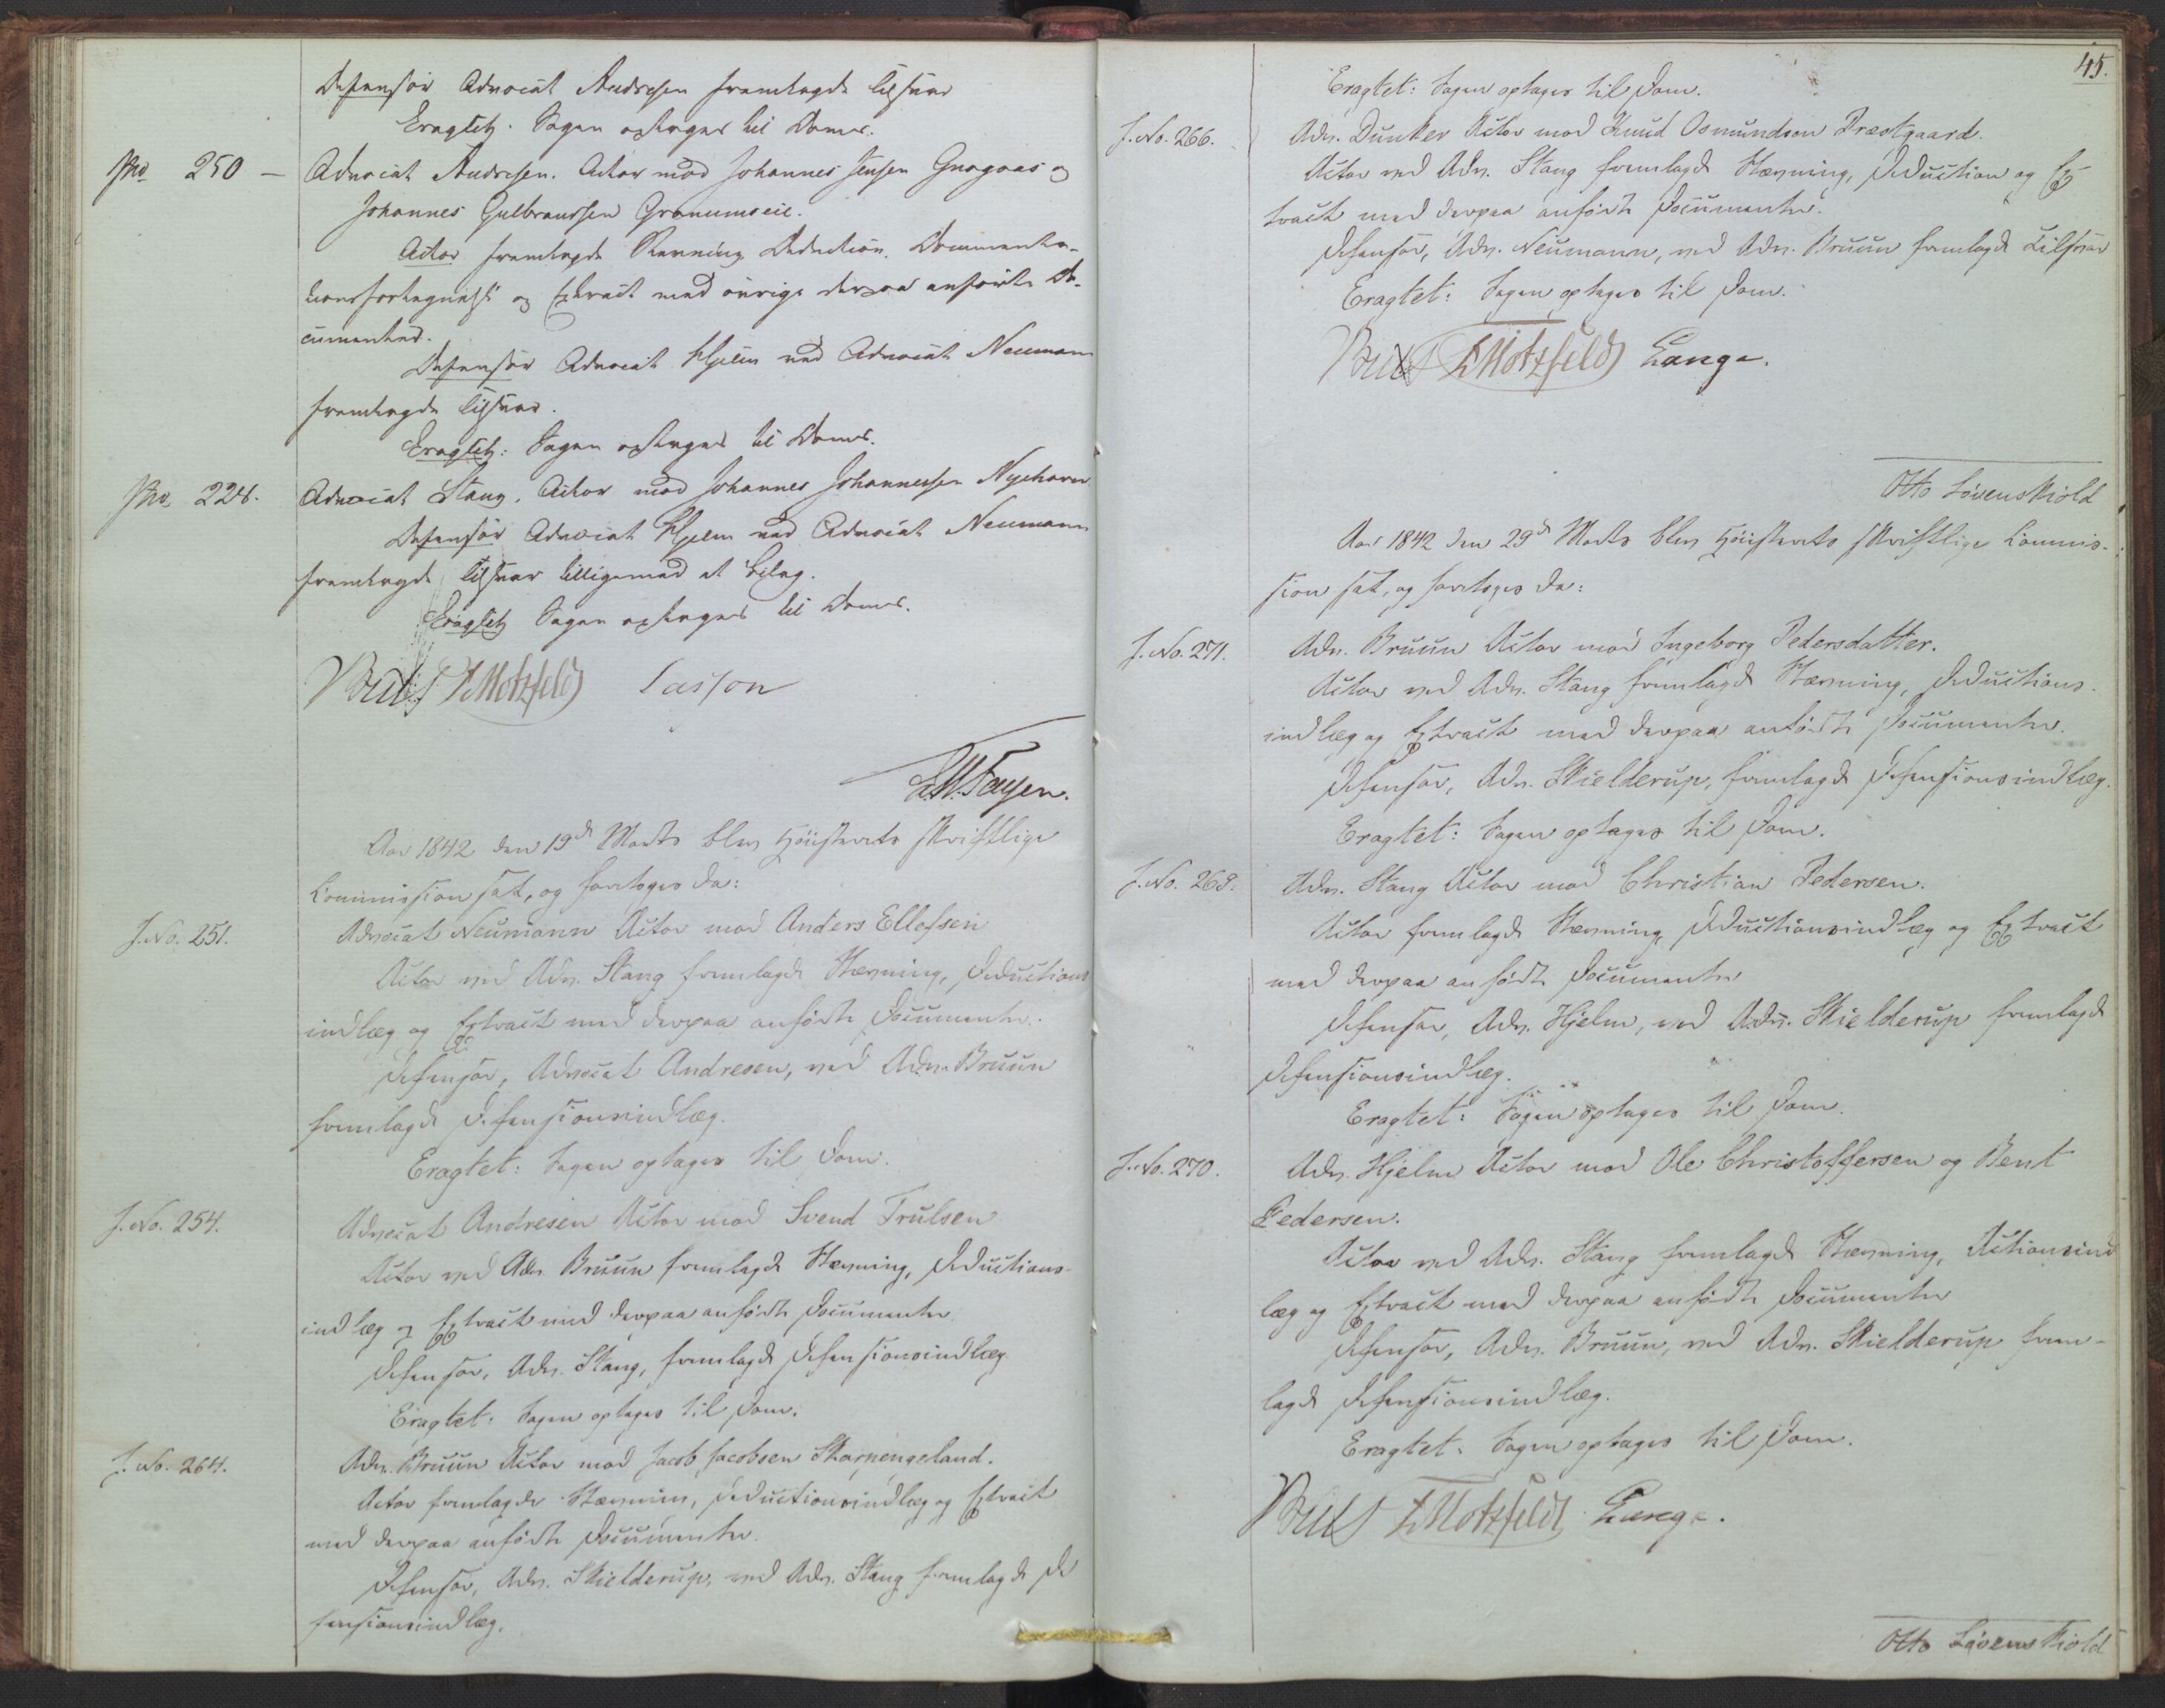 Defensor Advocat Andresen fremlagde tilsvar
Eragtet: Sagen optages til Doms.
No 250 — Advocat Andresen. Actor mod Johannes Jensen Gnagaas og
Johannes Gulbrandsen Granumseie.
Actor fremlagde Stevning Deduction, Documenta-
tionsfortegnelse og Extract med øvrige derpaa anførte Do-
cumenter.
Defensor Advocat Hjelm ved Advocat Neumann
fremlagde tilsvar.
Eragtet: Sagen optages til Doms.
No 228. Advocat Stang. Actor mod Johannes Johannessen
Defensor Advocat Hjelm ved Advocat Neumann
fremlagde tilsvar tilligemed et bilag.
Eragtet Sagen optages til Doms.
Bull Motzfeldt Lasson
Fayen.
Aar 1842 den 19de Marts blev Höiesterets skriftlige
Commission sat, og foretoges da:
J. No. 251. Advocat Neumann Actor mod Anders Ellefsen
Actor ved Adv. Stang fremlagde Stævning, Deductions
indlæg og Extract med derpaa anførte Documenter.
Defensor, Advocat Andresen, ved Adv. Bruun
fremlagde Defensionsindlæg.
Eragtet: Sagen optages til Dom.
J. No. 254. Advocat Andresen Actor mod Svend Trulsen
Actor ved Adv. Bruun fremlagde Stævning, Deductions-
indlæg og Extract med derpaa anførte Documenter
Defensor, Adv. Stang, fremlagde Defensionsindlæg
Eragtet: Sagen optages til Dom.
J. No. 264. Adv. Bruun Actor mod Jacob Jacobsen Skarpengeland.
Actor fremlagde Stævning, Deductionsindlæg og Extract
med derpaa anførte Documenter.
Defensor, Adv. Skielderup, ved Adv. Stang fremlagde De
fensionsindlæg.
45.
Eragtet: Sagen optages til Dom.
J. No. 266. Adv. Dunker Actor mod Knud Osmundson Præstgaard.
Actor ved Adv. Stang fremlagde Stævning, Deduction og Ex
tract med derpaa anførte Documenter.
Defensor, Adv. Neumann, ved Adv. Bruun fremlagde Tilsvar
Eragtet: Sagen optages til Dom.
Bull Motzfeldt Lange.
Otto Løvenskiold
Aar 1842 den 29de Marts blev Höiesterets skriftlige Commis-
sion sat, og foretoges da:
J. No. 271. Adv. Bruun Actor mod Ingeborg Pedersdatter.
Actor ved Adv. Stang fremlagde Stævning, Deductions-
indlæg og Extract med derpaa anførte Documenter.
Defensor, Adv. Skielderup, fremlagde Defensionsindlæg.
Eragtet: Sagen optages til Dom.
J. No. 268. Adv. Stang Actor mod Christian Pedersen.
Actor fremlagde Stævning, Deductionsindlæg og Extract
med derpaa anførte Documenter
Defensor, Adv. Hjelm, ved Adv. Skielderup fremlagde
Defensionsindlæg.
Eragtet: Sagen optages til Dom.
J. No. 270. Adv. Hjelm Actor mod Ole Christoffersen og Bent
Pedersen.
Actor ved Adv. Stang fremlagde Stævning, Actionsind
læg og Extract med derpaa anførte Documenter
Defensor, Adv. Bruun, ved Adv. Skielderup frem-
lagde Defensionsindlæg.
Eragtet: Sagen optages til Dom.
Bull Motzfeldt Lange.
Otto Løvenskiold